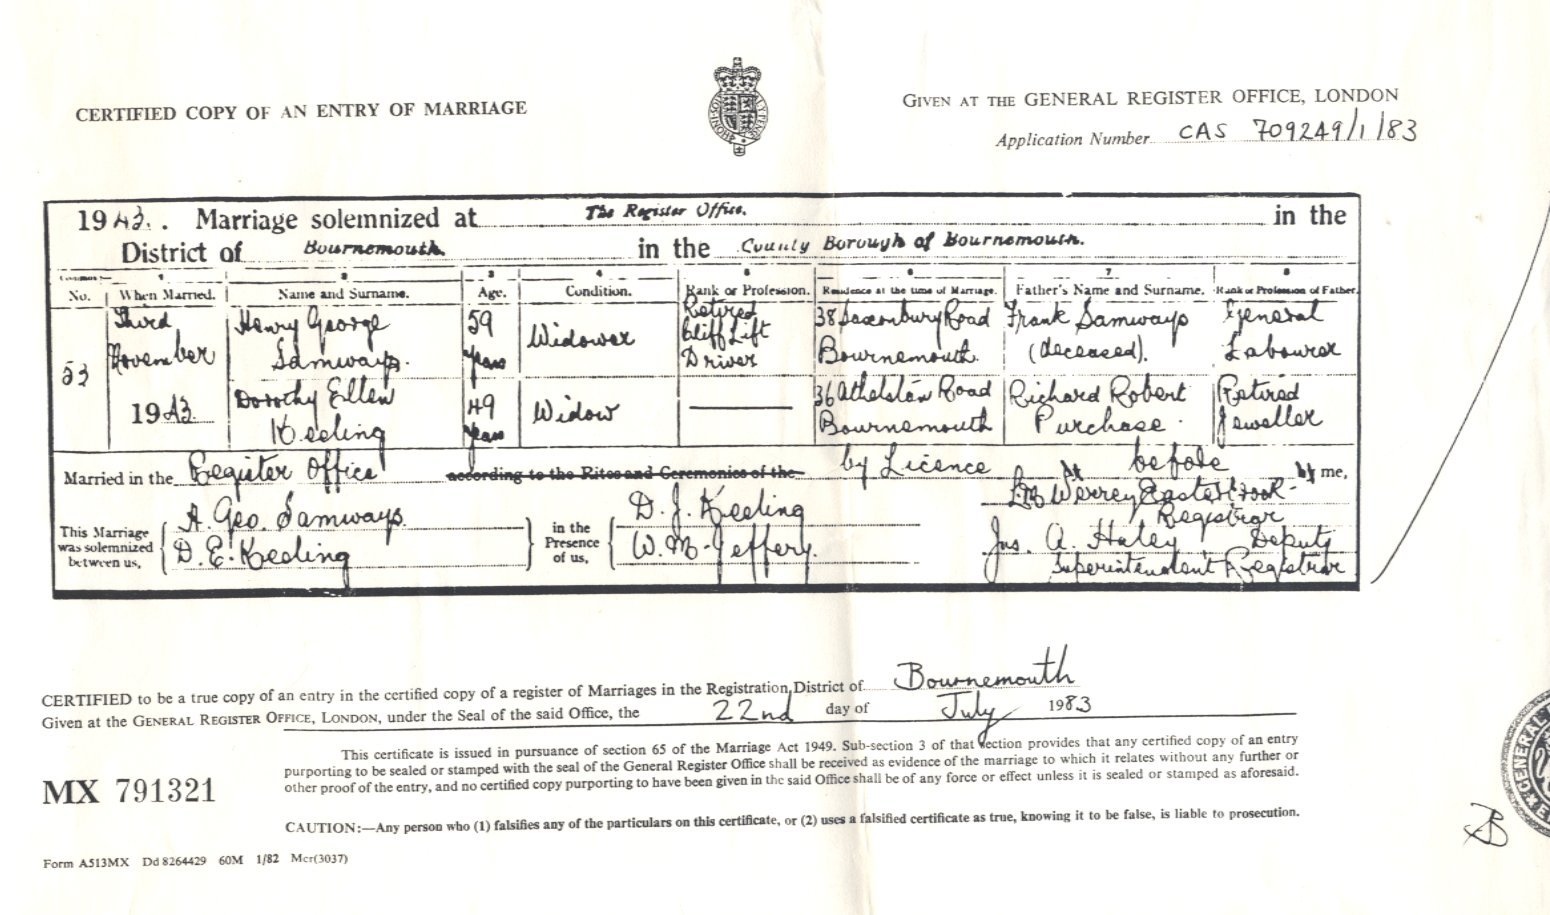 CERTIFIED COPY OF AN ENTRY OF MARRIAGE
GIVEN AT THE GENERAL REGISTER OFFICE, LONDON
Application Number CAS 709249/1/83
1943. Marriage solemnized at The Register Office. in the
District of Bournemouth. in the County Borough of Bournemouth.
1 2 3 4 5 6 7 8
No. When Married. Name and Surname. Age. Condition. Rank or Profession. Residence at the time of Marriage. Father's Name and Surname. Rank or Profession of Father.
53
Third
November
1943
Henry George
Samways.
59
years
Widower
Retired
Cliff Lift
Driver
38 Saxonbury Road
Bournemouth.
Frank Samways
(deceased).
General
Labourer
Dorothy Ellen
Keeling
49
years
Widow
36 Athelstan Road
Bournemouth
Richard Robert
Purchase.
Retired
Jeweller
Married in the Register Office according to the Rites and Ceremonies of the by Licence before by me,
This Marriage
was solemnized
between us,
Geo. Samways.
D. E. Keeling
in the
Presence
of us,
D. J. Keeling
W. M. Jeffery.
Registrar
Jas. A. Haley Deputy
Superintendent Registrar
CERTIFIED to be a true copy of an entry in the certified copy of a register of Marriages in the Registration District of Bournemouth
Given at the GENERAL REGISTER OFFICE, LONDON, under the Seal of the said Office, the 22nd day of July 1983
This certificate is issued in pursuance of section 65 of the Marriage Act 1949. Sub-section 3 of that section provides that any certified copy of an entry
purporting to be sealed or stamped with the seal of the General Register Office shall be received as evidence of the marriage to which it relates without any further or
other proof of the entry, and no certified copy purporting to have been given in the said Office shall be of any force or effect unless it is sealed or stamped as aforesaid.
MX 791321
CAUTION:—Any person who (1) falsifies any of the particulars on this certificate, or (2) uses a falsified certificate as true, knowing it to be false, is liable to prosecution.
Form A513MX Dd 8264429 60M 1/82 Mcr(3037)
GENERAL